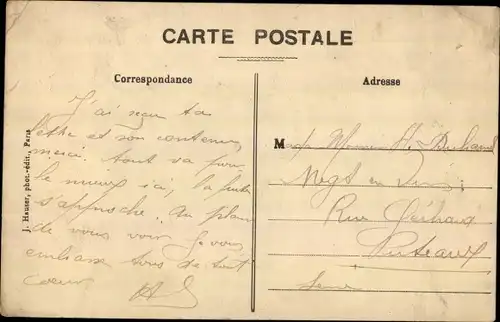 CARTE POSTALE
Correspondance
Adresse
J. Hauser, phot.-édit., Paris
J'ai reçu ta
lettre et son contenu
merci. tout va pour
le mieux ici, la
s'approche. Au plaisir
de vous voir. Je vous
embrasse tous de tout
coeur.
M Monsieur H. Duhamel
Negt en Vins
Rue Gérhard
Puteaux
Seine